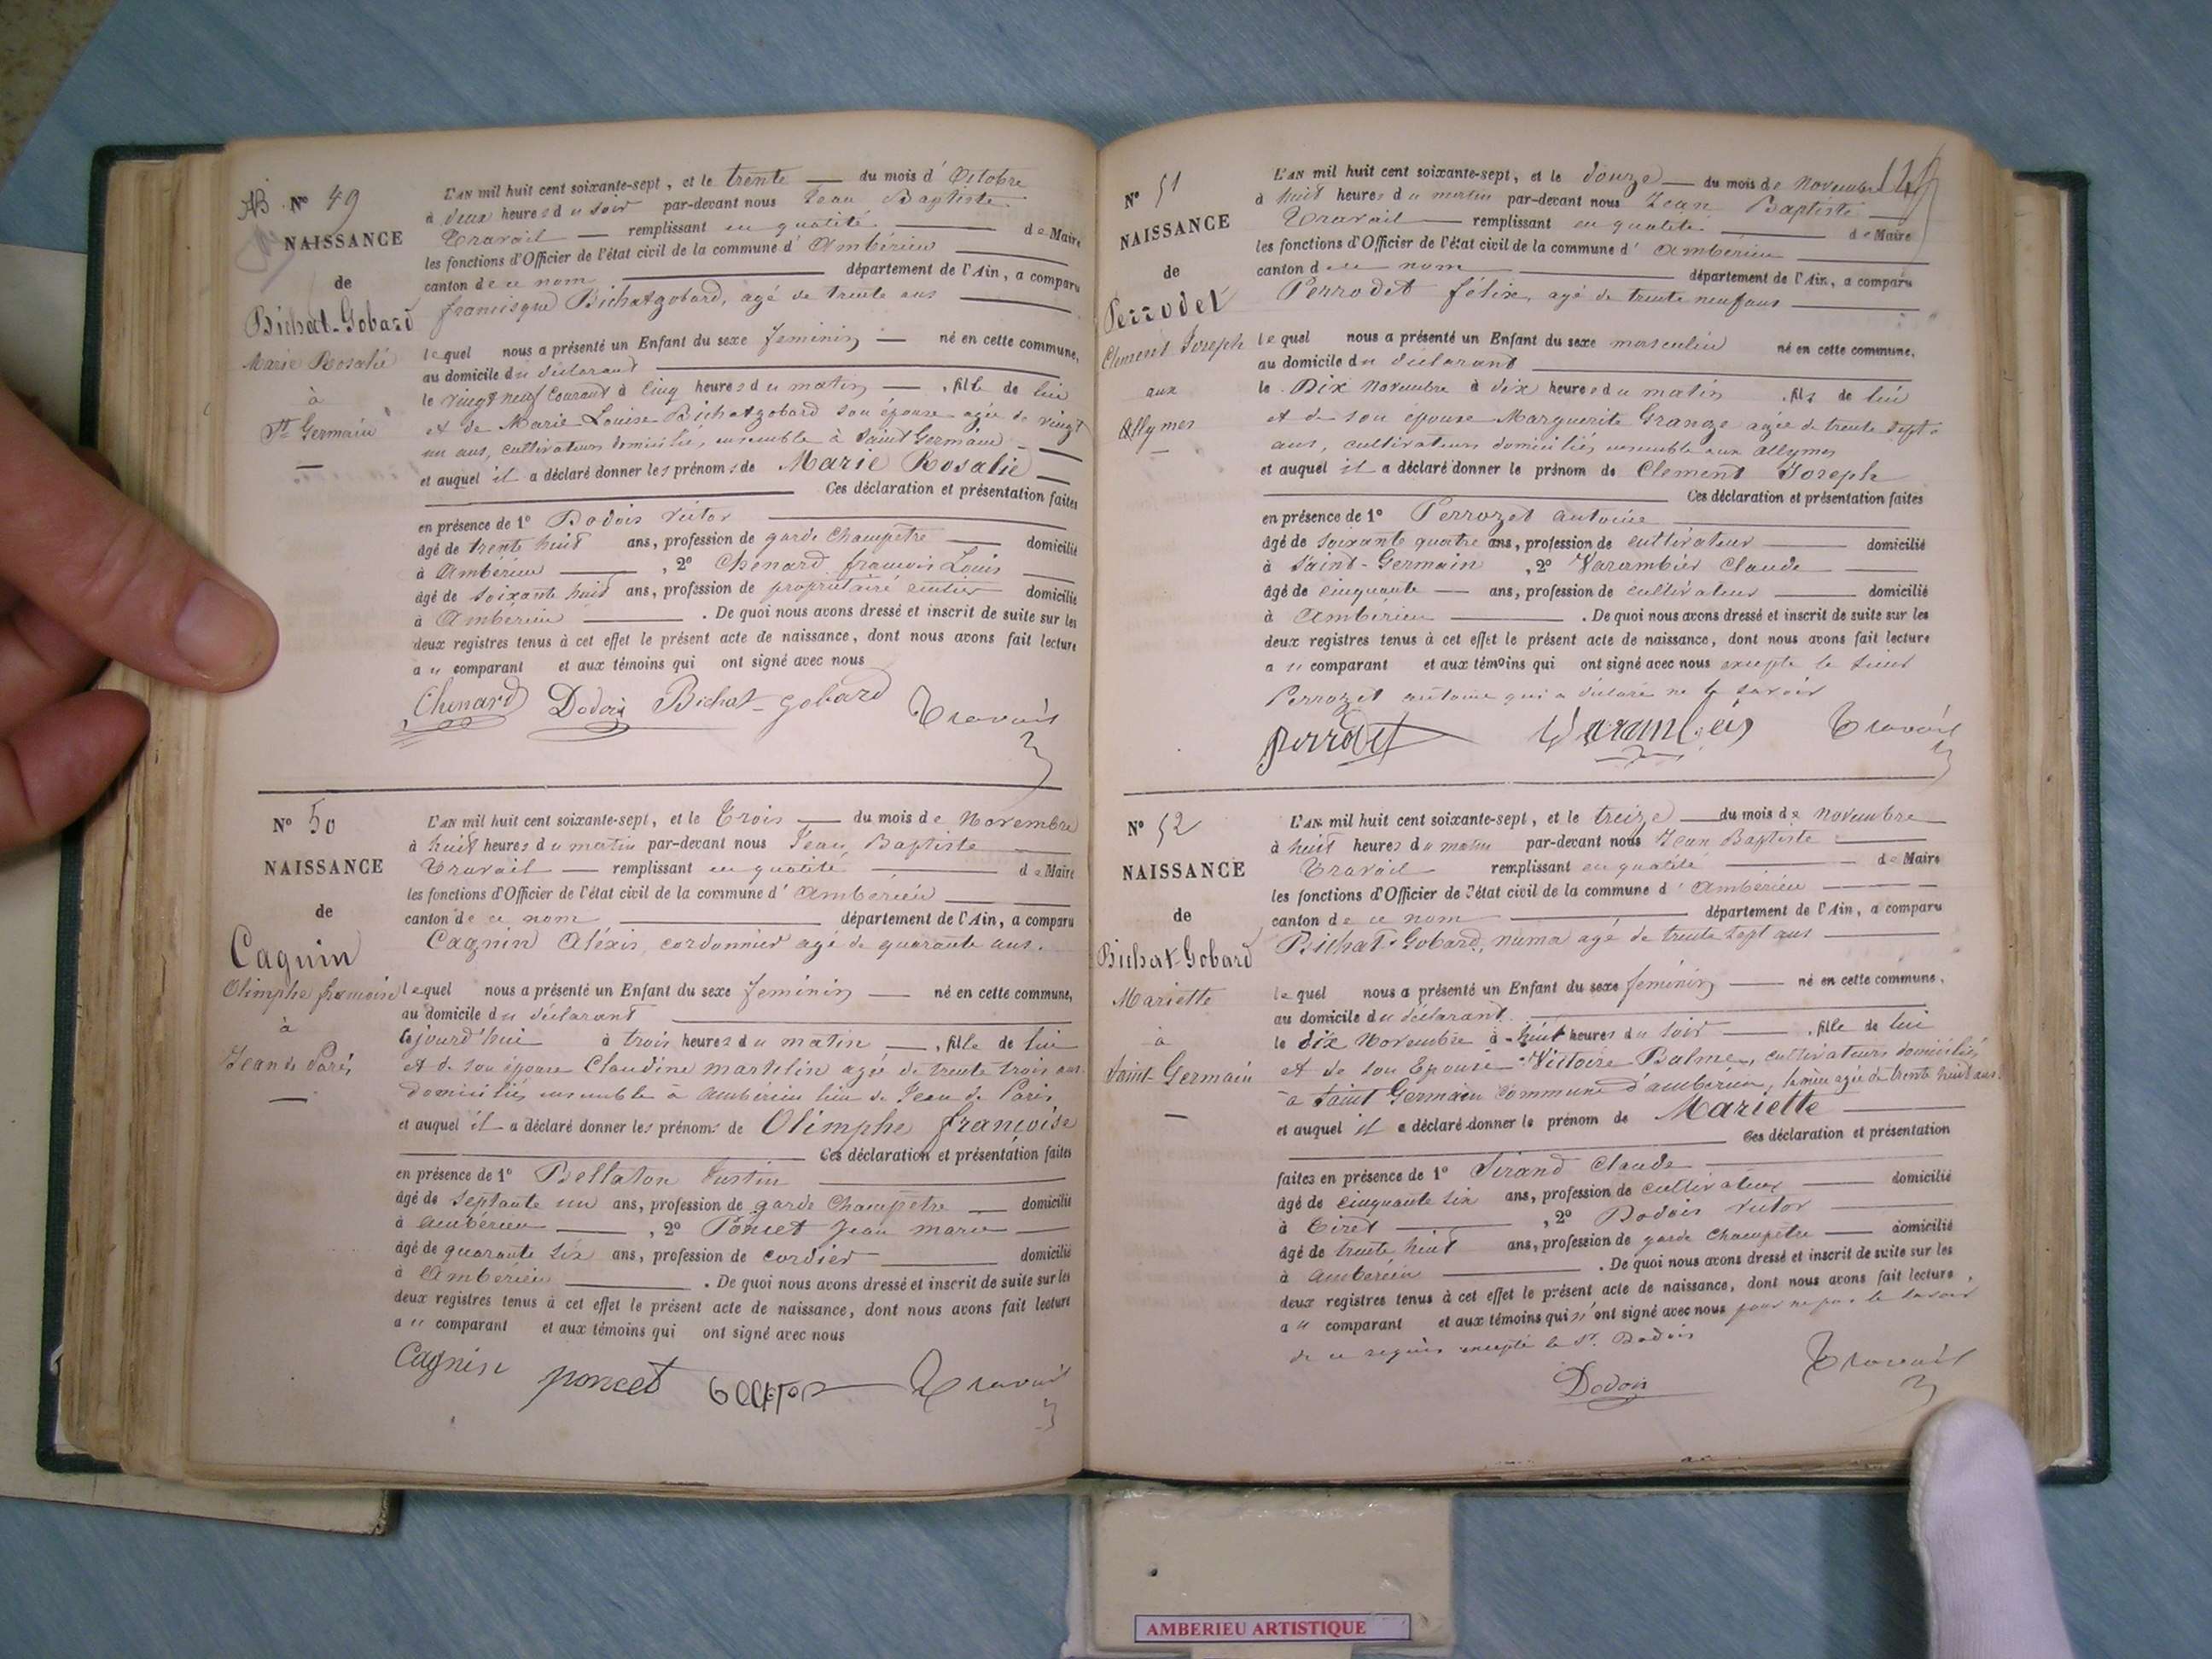 AB N° 49
NAISSANCE
de
Bichat-Gobard
Marie Rosalie
à
St Germain
L'AN mil huit cent soixante-sept, et le trente du mois d'Octobre
à deux heures du soir par-devant nous Jean Baptiste
Travail remplissant en qualité de Maire
les fonctions d'Officier de l'état civil de la commune d'Ambérieu
canton de ce nom département de l'Ain, a comparu
francisque Bichatgobard, agé de trente ans
lequel nous a présenté un Enfant du sexe feminin né en cette commune,
au domicile du déclarant
le vingt neuf Courant à cinq heures du matin, fille de lui
et de Marie Louise Bichatgobard son épouse agée de vingt
un ans, cultivateurs domiciliés ensemble à Saint Germain
et auquel il a déclaré donner les prénoms de Marie Rosalie
Ces déclaration et présentation faites
en présence de 1° Dodois victor
âgé de trente huit ans, profession de garde Champêtre domicilié
à Ambérieu, 2° Chenard françois Louis
âgé de soixante huit ans, profession de propriétaire rentier domicilié
à Ambérieu. De quoi nous avons dressé et inscrit de suite sur les
deux registres tenus à cet effet le présent acte de naissance, dont nous avons fait lecture
au comparant et aux témoins qui ont signé avec nous
Chenard Dodois Bichat-gobard Travail
N° 50
NAISSANCE
de
Cagnin
Olimphe françoise
à
Jean de Paris
L'AN mil huit cent soixante-sept, et le Trois du mois de Novembre
à huit heures du matin par-devant nous Jean Baptiste
Travail remplissant en qualité de Maire
les fonctions d'Officier de l'état civil de la commune d'Ambérieu
canton de ce nom département de l'Ain, a comparu
Cagnin Aléxis, cordonnier agé de quarante ans.
lequel nous a présenté un Enfant du sexe feminin né en cette commune,
au domicile du déclarant
cejourd'hui à trois heures du matin, fille de lui
et de son épouse Claudine martelin agée de trente trois ans
domiciliés ensemble à Ambérieu lieu de Jean de Paris
et auquel il a déclaré donner les prénoms de Olimphe françoise
Ces déclaration et présentation faites
en présence de 1° Bellaton Justin
âgé de septante un ans, profession de garde Champêtre domicilié
à Ambérieu, 2° Poncet Jean marie
âgé de quarante six ans, profession de cordier domicilié
à Ambérieu. De quoi nous avons dressé et inscrit de suite sur les
deux registres tenus à cet effet le présent acte de naissance, dont nous avons fait lecture
au comparant et aux témoins qui ont signé avec nous
Cagnin poncet Travail
N° 51
NAISSANCE
de
Perrodet
Clement Joseph
aux
Allymes
L'AN mil huit cent soixante-sept, et le douze du mois de novembre
à huit heures du matin par-devant nous Jean Baptiste
Travail remplissant en qualité de Maire
les fonctions d'Officier de l'état civil de la commune d'Ambérieu
canton de ce nom département de l'Ain, a comparu
Perrodet félix, agé de trente neuf ans
lequel nous a présenté un Enfant du sexe masculin né en cette commune,
au domicile du déclarant
le Dix novembre à dix heures du matin, fils de lui
et de son épouse Marguerite Grange agée de trente sept
ans, cultivateurs domiciliés ensemble aux allymes
et auquel il a déclaré donner le prénom de Clement Joseph
Ces déclaration et présentation faites
en présence de 1° Perrozet antoine
âgé de soixante quatre ans, profession de cultivateur domicilié
à Saint-Germain, 2° Varambier Claude
âgé de cinquante ans, profession de cultivateur domicilié
à Ambérieu. De quoi nous avons dressé et inscrit de suite sur les
deux registres tenus à cet effet le présent acte de naissance, dont nous avons fait lecture
au comparant et aux témoins qui ont signé avec nous excepté le
Perrozet antoine qui a déclaré ne le savoir
Perrodet Travail
N° 52
NAISSANCE
de
Bichat-Gobard
Mariette
à
Saint-Germain
L'AN mil huit cent soixante-sept, et le treize du mois de novembre
à huit heures du matin par-devant nous Jean Baptiste
Travail remplissant en qualité de Maire
les fonctions d'Officier de l'état civil de la commune d'Ambérieu
canton de ce nom département de l'Ain, a comparu
Bichat-Gobard, numa agé de trente sept ans
lequel nous a présenté un Enfant du sexe feminin né en cette commune.
au domicile du déclarant
le dix Novembre à huit heures du soir, fille de lui
et de son Epouse Victoire Balme, cultivateurs domiciliés
à Saint Germain commune d'ambérieu, la mère agée de trente huit ans.
et auquel il a déclaré donner le prénom de Mariette
Ces déclaration et présentation
faites en présence de 1° Sirand Claude
âgé de cinquante six ans, profession de cultivateur domicilié
à Tiret, 2° Dodois victor
âgé de trente huit ans, profession de garde champêtre domicilié
à ambérieu. De quoi nous avons dressé et inscrit de suite sur les
deux registres tenus à cet effet le présent acte de naissance, dont nous avons fait lecture,
au comparant et aux témoins qui n'ont signé avec nous pour ne pas le savoir
de ce requis excepté le Sr. Dodois
Dodois Travail
AMBERIEU ARTISTIQUE